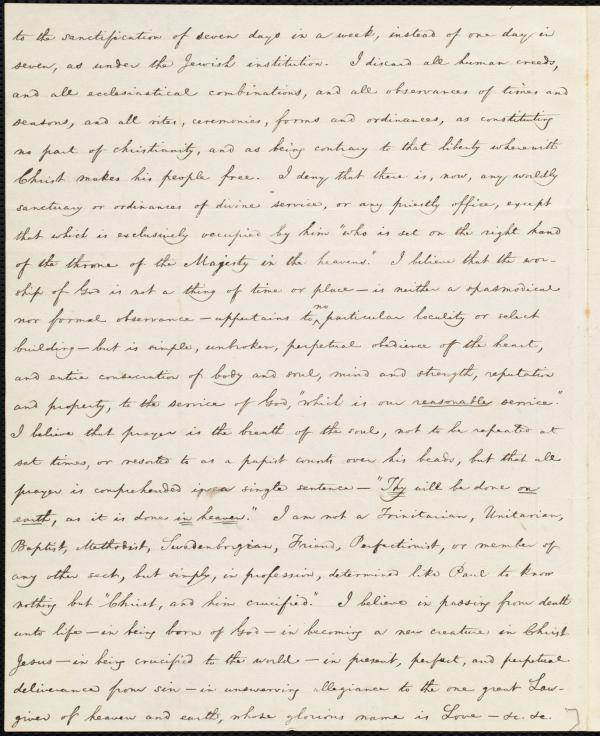 to the sanctification of seven days in a week, instead of one day in
seven, as under the Jewish institution. I discard all human creeds,
and all ecclesiastical combinations, and all observances of times and
seasons, and all rites, ceremonies, forms and ordinances, as constituting
no part of christianity, and as being contrary to that liberty wherewith
Christ makes his people free. I deny that there is, now, any worldly
sanctuary or ordinances of divine service, or any priestly office, except
that which is exclusively occupied by him "who is set on the right hand
of the throne of the Majesty in the heavens." I believe that the wor-
ship of God is not a thing of time or place — is neither a spasmodical
nor formal observance — appertains to no particular locality or select
building — but is simple, unbroken, perpetual obedience of the heart,
and entire consecration of body and soul, mind and strength, reputation
and property, to the service of God, "which is our reasonable service."
I believe that prayer is the breath of the soul, not to be repeated at
set times, or resorted to as a papist counts over his beads, but that all
prayer is comprehended in a single sentence — "Thy will be done on
earth, as it is done in heaven." I am not a Trinitarian, Unitarian,
Baptist, Methodist, Swedenborgian, Friend, Perfectionist, or member of
any other sect, but simply, in profession, determined like Paul to know
nothing but "Christ, and him crucified." I believe in passing from death
unto life — in being born of God — in becoming a new creature in Christ
Jesus — in being crucified to the world — in present, perfect, and perpetual
deliverance from sin — in unswerving allegiance to the one great Law-
giver of heaven and earth, whose glorious name is Love — &c. &c.